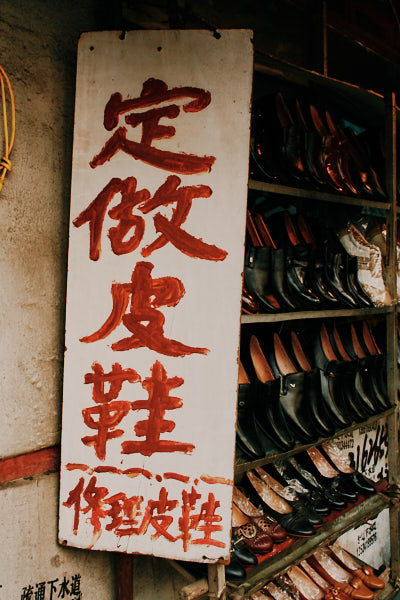 定做皮鞋
修理皮鞋
疏通下水道